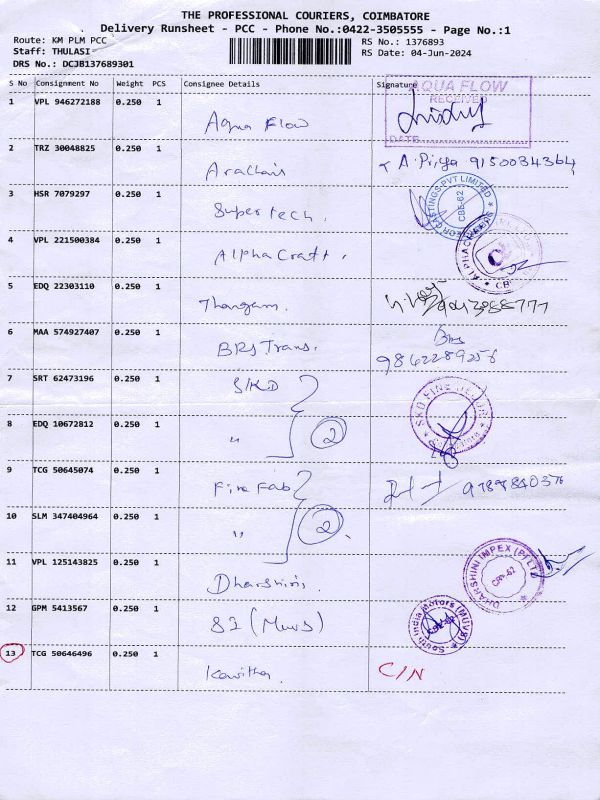 THE PROFESSIONAL COURIERS, COIMBATORE
Delivery Runsheet - PCC - Phone No.:0422-3505555 - Page No.:1
Route: KM PLM PCC
Staff: THULASI
DRS No.: DCJB137689301
RS No.: 1376893
RS Date: 04-Jun-2024
S No Consignment No Weight PCS Consignee Details Signature
1 VPL 946272188 0.250 1 Aqua Flow
AQUA FLOW
RECEIVED
DATE
2 TRZ 30048825 0.250 1 Arachais A. Priya 9150034364
3 HSR 7079297 0.250 1 Supertech.
CASTINGS PVT LIMITED
CBE-62
4 VPL 221500384 0.250 1 Alpha Craft.
ALPHACRAFT
5 EDQ 22303110 0.250 1 Thangam.
6 MAA 574927407 0.250 1 BRS Trans. Brs
9862289256
7 SRT 62473196 0.250 1 S/KD
SKD FINE
8 EDQ 10672812 0.250 1 " 2
9 TCG 50645074 0.250 1 Fine Fab 9789840376
10 SLM 347404964 0.250 1 " 2
11 VPL 125143825 0.250 1 Dharshini.
DHARSHINI IMPEX (P) LTD
CBE-62
12 GPM 5413567 0.250 1 SI (Muvs)
South India Motors (MUVS)
13 TCG 50646496 0.250 1 Kavitha. C/N